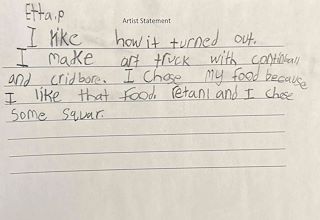 Etta.p
Artist Statement
I like how it turned out.
I make art truck with
and cridbore. I chose my food because
I like that food. retani and I chose
some squar.